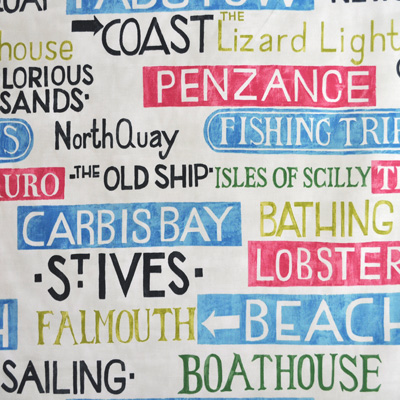 PADSTOW
COAST THE Lizard Light
house
GLORIOUS SANDS· PENZANCE
NorthQuay FISHING TRIP
TRURO ·THE OLD SHIP· ISLES OF SCILLY
CARBIS BAY BATHING
·ST IVES· LOBSTER
FALMOUTH BEACH
SAILING· BOATHOUSE